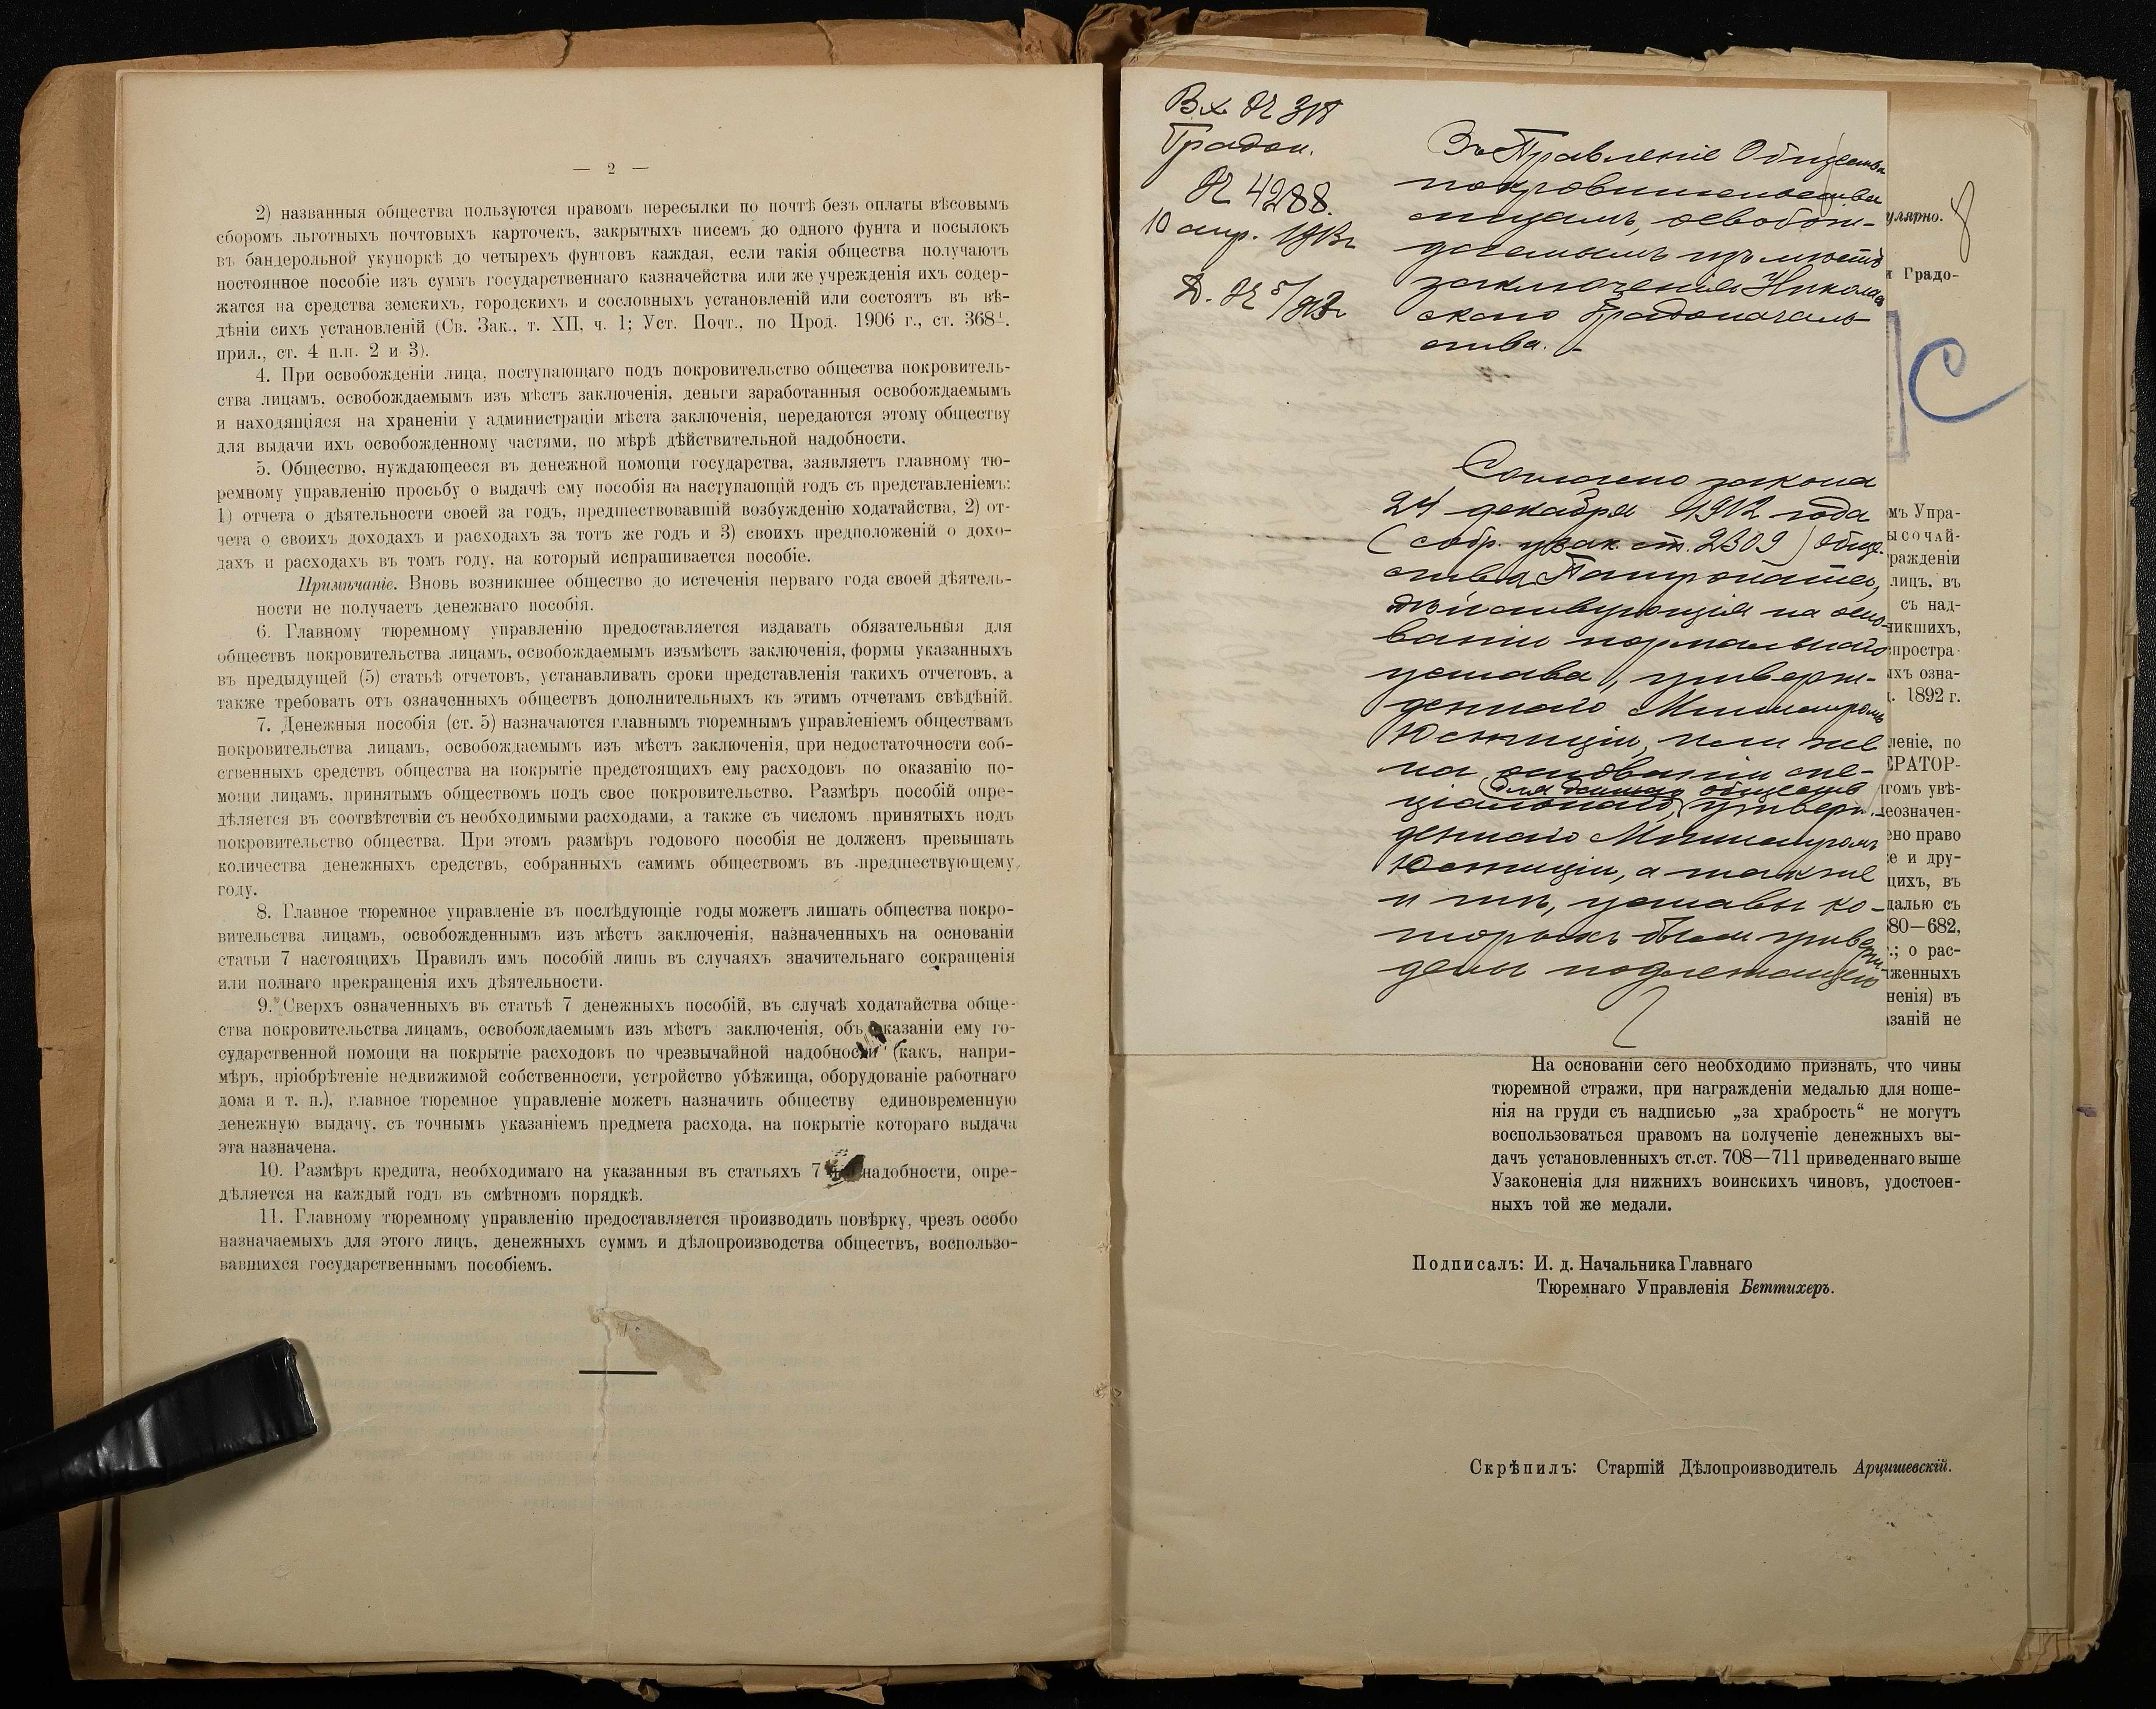 — 2 —
2) названныя общества пользуются правомъ пересылки по почтѣ безъ оплаты вѣсовымъ
сборомъ льготныхъ почтовыхъ карточекъ, закрытыхъ писемъ до одного фунта и посылокъ
въ бандерольной укупоркѣ до четырехъ фунтовъ каждая, если такія общества получаютъ
постоянное пособіе изъ суммъ государственнаго казначейства или же учрежденія ихъ содер-
жатся на средства земскихъ, городскихъ и сословныхъ установленій или состоятъ въ вѣ-
дѣніи сихъ установленій (Св. Зак., т. XII, ч. 1; Уст. Почт., по Прод. 1906 г., ст. 368¹,
прил., ст. 4 п.п. 2 и 3).
4. При освобожденіи лица, поступающаго подъ покровительство общества покровитель-
ства лицамъ, освобождаемымъ изъ мѣстъ заключенія, деньги заработанныя освобождаемымъ
и находящіяся на храненіи у администраціи мѣста заключенія, передаются этому обществу
для выдачи ихъ освобожденному частями, по мѣрѣ дѣйствительной надобности.
5. Общество, нуждающееся въ денежной помощи государства, заявляетъ главному тю-
ремному управленію просьбу о выдачѣ ему пособія на наступающій годъ съ представленіемъ:
1) отчета о дѣятельности своей за годъ, предшествовавшій возбужденію ходатайства, 2) от-
чета о своихъ доходахъ и расходахъ за тотъ же годъ и 3) своихъ предположеній о дохо-
дахъ и расходахъ въ томъ году, на который испрашивается пособіе.
Примѣчаніе. Вновь возникшее общество до истеченія перваго года своей дѣятель-
ности не получаетъ денежнаго пособія.
6. Главному тюремному управленію предоставляется издавать обязательныя для
обществъ покровительства лицамъ, освобождаемымъ изъ мѣстъ заключенія, формы указанныхъ
въ предыдущей (5) статьѣ отчетовъ, устанавливать сроки представленія такихъ отчетовъ, а
также требовать отъ означенныхъ обществъ дополнительныхъ къ этимъ отчетамъ свѣдѣній.
7. Денежныя пособія (ст. 5) назначаются главнымъ тюремнымъ управленіемъ обществамъ
покровительства лицамъ, освобождаемымъ изъ мѣстъ заключенія, при недостаточности соб-
ственныхъ средствъ общества на покрытіе предстоящихъ ему расходовъ по оказанію по-
мощи лицамъ, принятымъ обществомъ подъ свое покровительство. Размѣръ пособій опре-
дѣляется въ соотвѣтствіи съ необходимыми расходами, а также съ числомъ принятыхъ подъ
покровительство общества. При этомъ размѣръ годового пособія не долженъ превышать
количества денежныхъ средствъ, собранныхъ самимъ обществомъ въ предшествующему
году.
8. Главное тюремное управленіе въ послѣдующіе годы можетъ лишать общества покро-
вительства лицамъ, освобожденнымъ изъ мѣстъ заключенія, назначенныхъ на основаніи
статьи 7 настоящихъ Правилъ имъ пособій лишь въ случаяхъ значительнаго сокращенія
или полнаго прекращенія ихъ дѣятельности.
9. Сверхъ означенныхъ въ статьѣ 7 денежныхъ пособій, въ случаѣ ходатайства обще-
ства покровительства лицамъ, освобождаемымъ изъ мѣстъ заключенія, объ оказаніи ему го-
сударственной помощи на покрытіе расходовъ по чрезвычайной надобности (какъ, напри-
мѣръ, пріобрѣтеніе недвижимой собственности, устройство убѣжища, оборудованіе работнаго
дома и т. п.), главное тюремное управленіе можетъ назначить обществу единовременную
денежную выдачу, съ точнымъ указаніемъ предмета расхода, на покрытіе котораго выдача
эта назначена.
10. Размѣръ кредита, необходимаго на указанныя въ статьяхъ 7 надобности, опре-
дѣляется на каждый годъ въ смѣтномъ порядкѣ.
11. Главному тюремному управленію предоставляется производить повѣрку, чрезъ особо
назначаемыхъ для этого лицъ, денежныхъ суммъ и дѣлопроизводства обществъ, воспользо-
вавшихся государственнымъ пособіемъ.
Вх. №
Градон.
№ 4288.
10 апр. 1913 г.
Д. № 5/913 г.
Въ Правленіе Общества
покровительства
лицамъ, освобож-
даемымъ изъ мѣстъ
заключенія Николаев
скаго Градоначаль-
ства.
Согласно закона
24 декабря 1912 года
(собр. узак. ст. 2309) обще-
ства Патроната,
дѣйствующія на осно-
ваніи нормальнаго
устава, утверж-
деннаго Министромъ
Юстиціи, или же
на основаніи спе-
для данныхъ обществъ
ціальнаго, утверж-
деннаго Министромъ
Юстиціи, а также
и тѣ, уставы ко-
торыхъ были утверж-
дены подлежащею
8
улярно.
и Градо-
С
мъ Упра-
ысочай-
ражденіи
лицъ, въ
съ над-
никшихъ,
спростра-
ыхъ озна-
. 1892 г.
леніе, по
ЕРАТОР-
гомъ увѣ-
еозначен-
ено право
е и дру-
щихъ, въ
далью съ
80—682,
.; о рас-
женныхъ
ненія) въ
азаній не
На основаніи сего необходимо признать, что чины
тюремной стражи, при награжденіи медалью для ноше-
нія на груди съ надписью „за храбрость“ не могутъ
воспользоваться правомъ на полученіе денежныхъ вы-
дачъ установленныхъ ст.ст. 708—711 приведеннаго выше
Узаконенія для нижнихъ воинскихъ чиновъ, удостоен-
ныхъ той же медали.
Подписалъ: И. д. Начальника Главнаго
Тюремнаго Управленія Беттихеръ.
Скрѣпилъ: Старшій Дѣлопроизводитель Арцишевскій.